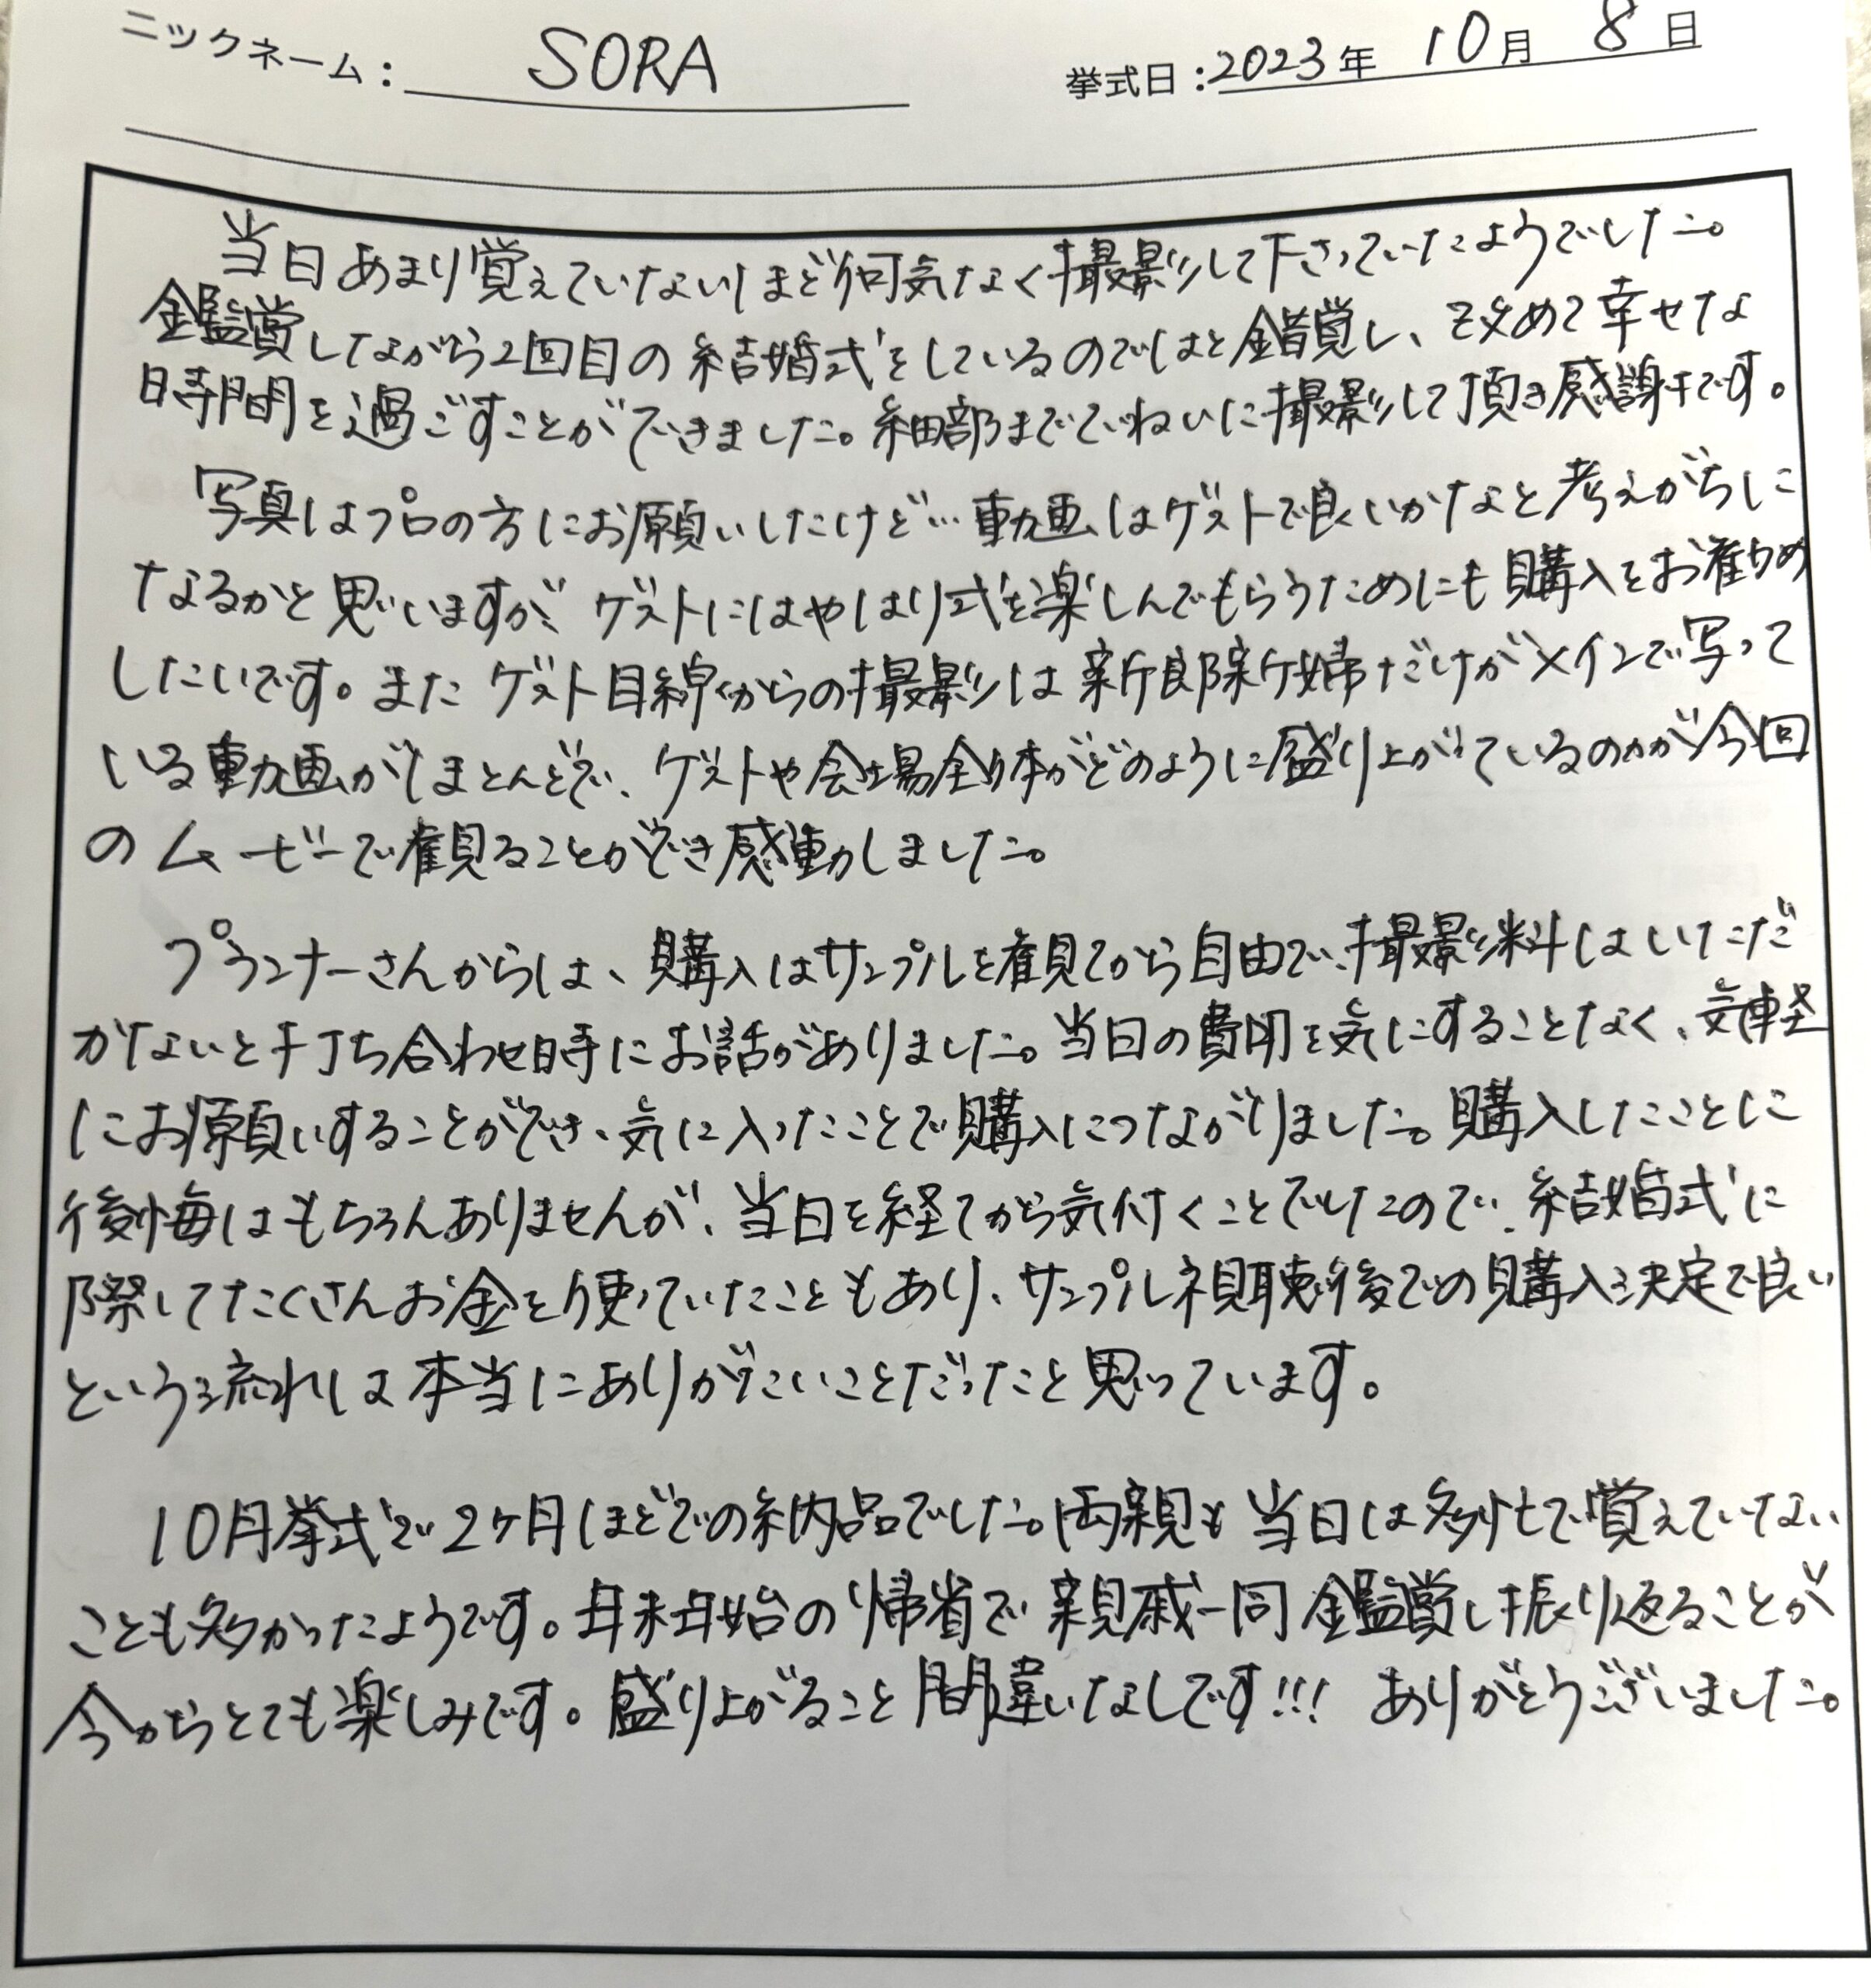 ニックネーム： SORA 挙式日：2023年 10月 8日
当日あまり覚えていないほど何気なく撮影して下さっていたようでした。
鑑賞しながら2回目の結婚式をしているのではと錯覚し、改めて幸せな
時間を過ごすことができました。細部までていねいに撮影して頂き感謝です。
写真はプロの方にお願いしたけど…動画はゲストで良いかなと考えがちに
なるかと思いますが、ゲストにはやはり式を楽しんでもらうためにも購入をお勧め
したいです。またゲスト目線からの撮影は新郎新婦だけがメインで写って
いる動画がほとんどで、ゲストや会場全体がどのように盛り上がっているのかが今回
のムービーで観ることができ感動しました。
プランナーさんからは、購入はサンプルを観てから自由で、撮影料はいただ
かないと打ち合わせ時にお話がありました。当日の費用を気にすることなく、気軽
にお願いすることができ、気に入ったことで購入につながりました。購入したことに
後悔はもちろんありませんが、当日を経てから気付くことでしたので、結婚式に
際してたくさんお金を使っていたこともあり、サンプル視聴後での購入決定で良い
という流れは本当にありがたいことだったと思っています。
10月挙式で2ヶ月ほどでの納品でした。両親も当日は多忙で覚えていない
ことも多かったようです。年末年始の帰省で親戚一同鑑賞し振り返ることが
今からとても楽しみです。盛り上がること間違いなしです!!! ありがとうございました。